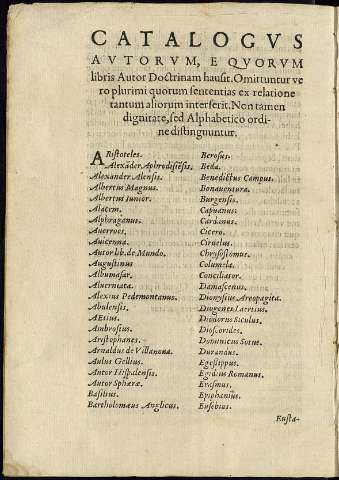 CATALOGVS
AVTORVM, E QVORVM
libris Autor Doctrinam hausit. Omittuntur ve
ro plurimi quorum sententias ex relatione
tantum aliorum interserit. Non tamen
dignitate, sed Alphabetico ordi-
ne distinguuntur.
ARistoteles.
Alexāder Aphrodisiēsis.
Alexander Alensis.
Albertus Magnus.
Albertus Iunior.
Alatem.
Alphraganus.
Averroes.
Avicenna.
Autor lib. de Mundo.
Augustinus
Albumasar.
Aluerniata.
Alexius Pedemontanus.
Abulensis.
AEtius.
Ambrosius.
Aristophanes.
Arnaldus de Villanoua.
Aulus Gellius.
Autor Hispalensis.
Autor Sphæræ.
Basilius.
Bartholomæus Anglicus.
Berosus.
Beda.
Benedictus Campus.
Bonaventura.
Burgensis.
Capuanus.
Cardanus.
Cicero.
Ciruelus.
Chrysostomus.
Columela.
Conciliator.
Damascenus.
Dionysius Areopagita.
Diogenes Laertius.
Diodorus Siculus.
Dioscorides.
Dominicus Sotus.
Durandus.
Egesippus.
Egidius Romanus.
Erasmus.
Epiphanius.
Eusebius.
Eusta-